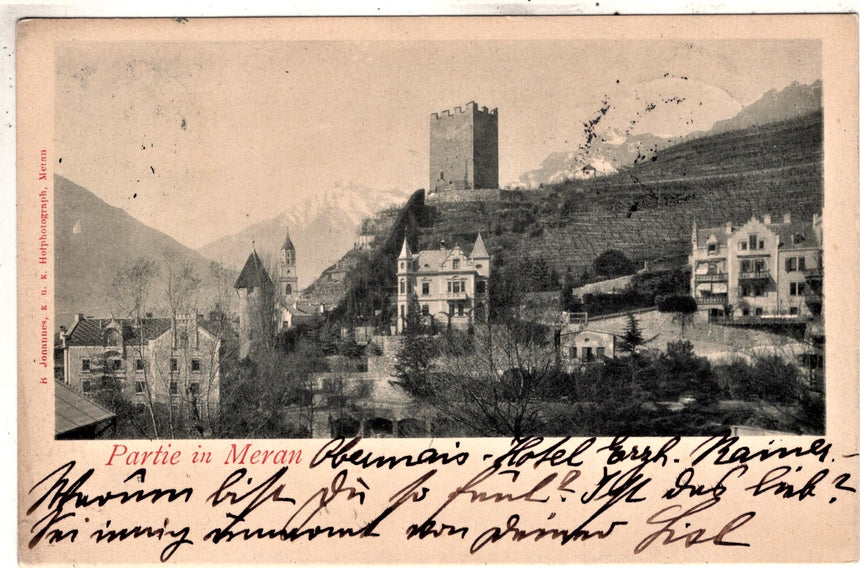 B. Johannes, K. u. K. Hofphotograph, Meran
Partie in Meran
Obermais - Hotel Erzh. Rainer. -
Warum bist Du so faul? Ist das lieb?
Sei innig umarmt von Deiner Lisl